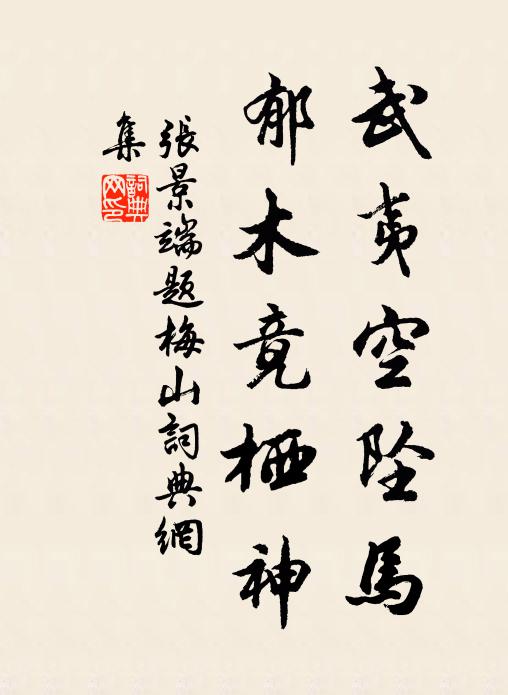 武夷空坠馬
郁木竟栖神
張景端題梅山詞典網
集
詞典網印